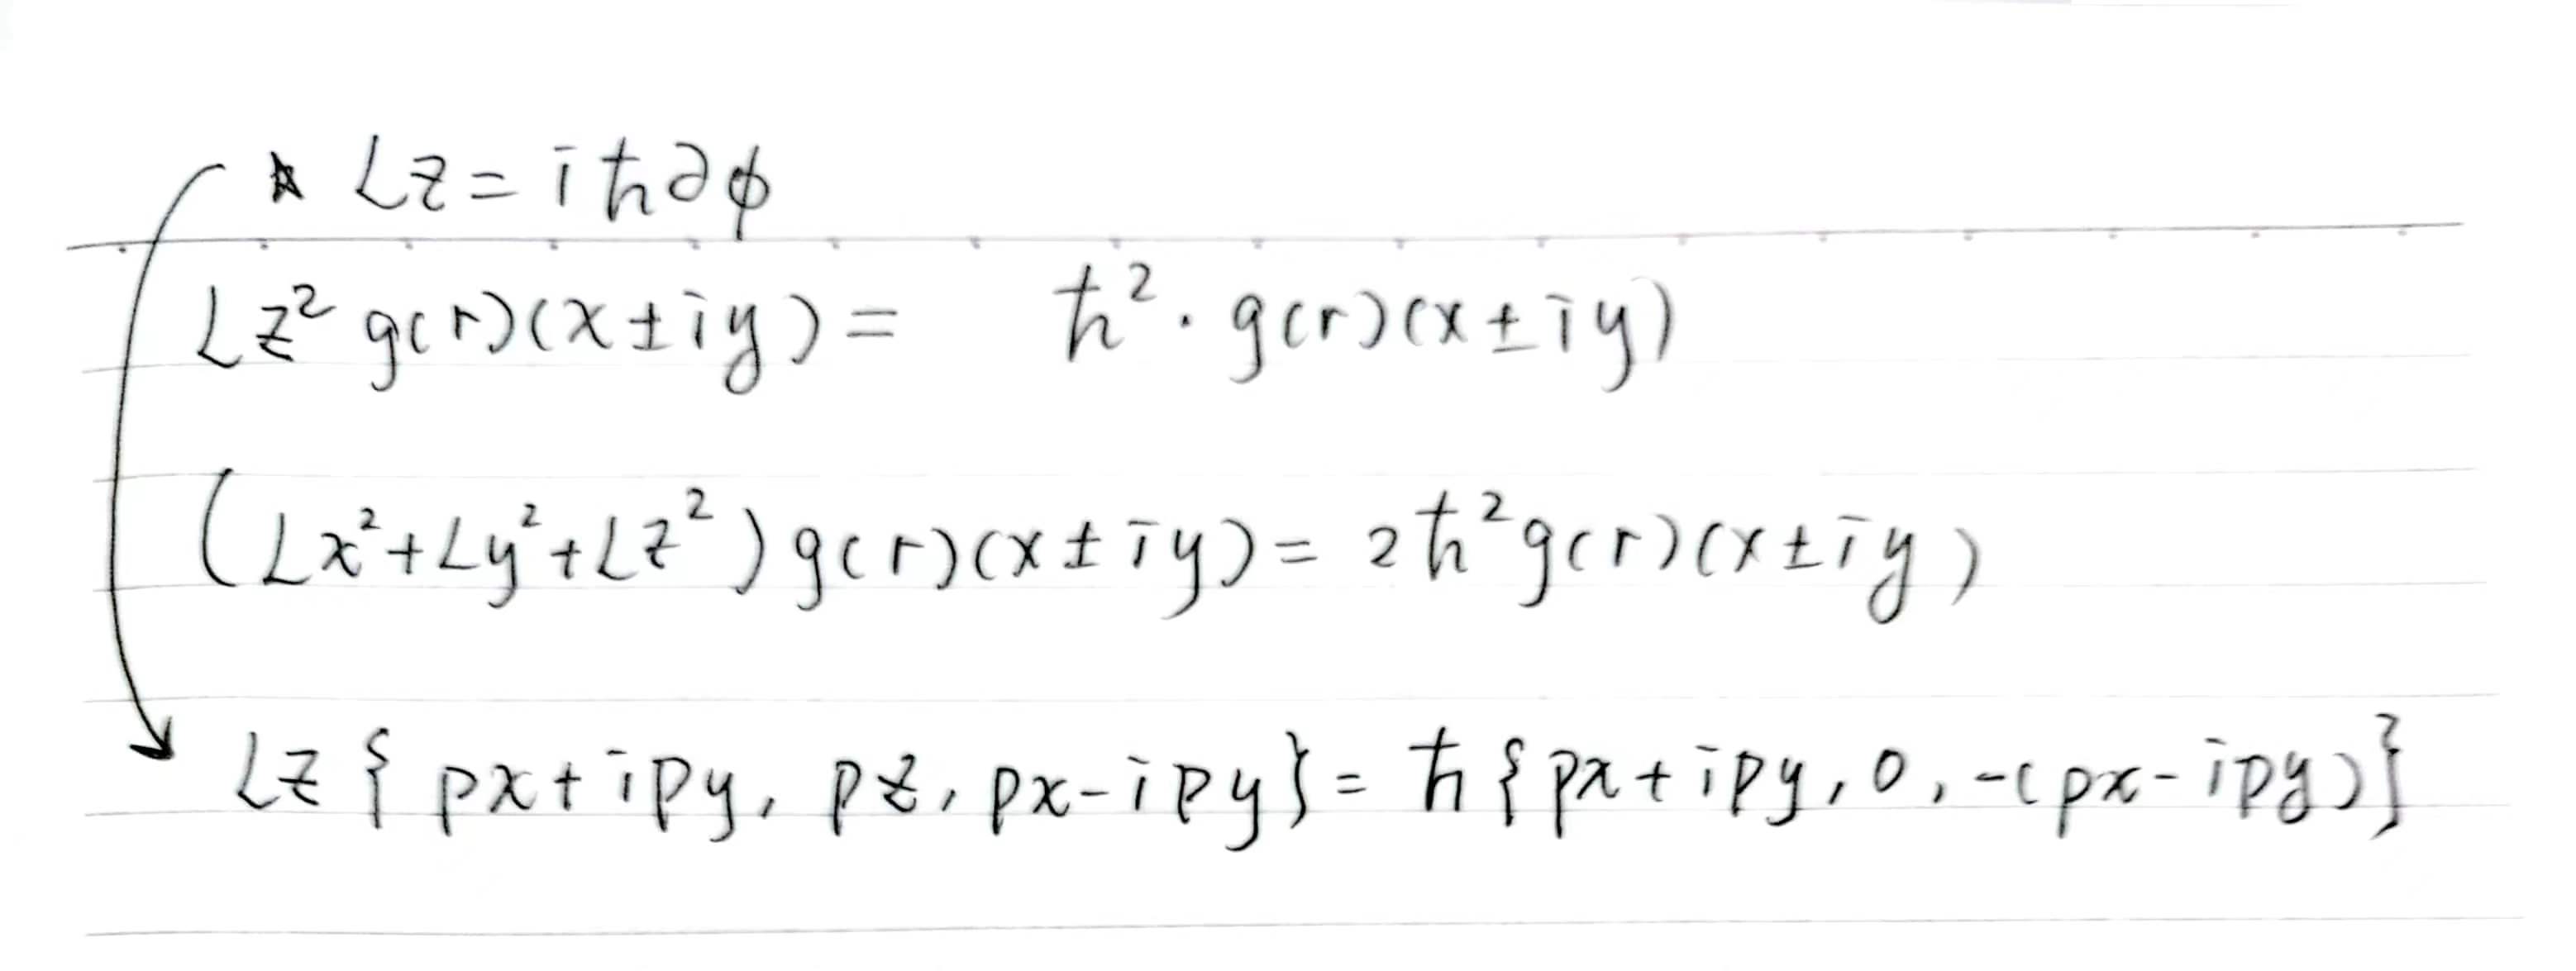 ★ Lz = iħ∂φ
Lz² g(r)(x±iy) = ħ²・g(r)(x±iy)
(Lx²+Ly²+Lz²)g(r)(x±iy) = 2ħ²g(r)(x±iy)
Lz{px+ipy, pz, px-ipy} = ħ{px+ipy, 0, -(px-ipy)}